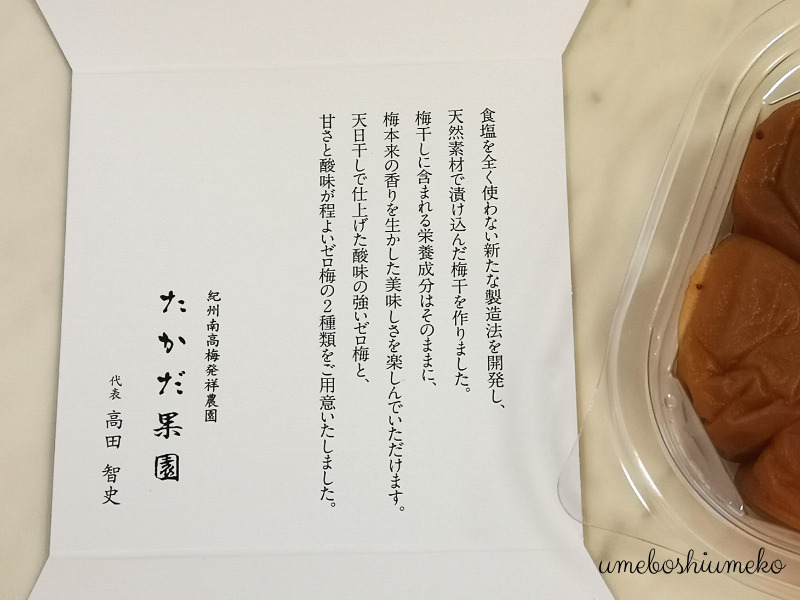 食塩を全く使わない新たな製造法を開発し、
天然素材で漬け込んだ梅干を作りました。
梅干しに含まれる栄養成分はそのままに、
梅本来の香りを生かした美味しさを楽しんでいただけます。
天日干しで仕上げた酸味の強いゼロ梅と、
甘さと酸味が程よいゼロ梅の2種類をご用意いたしました。
紀州南高梅発祥農園
たかだ果園
代表 高田 智史
umeboshiumeko